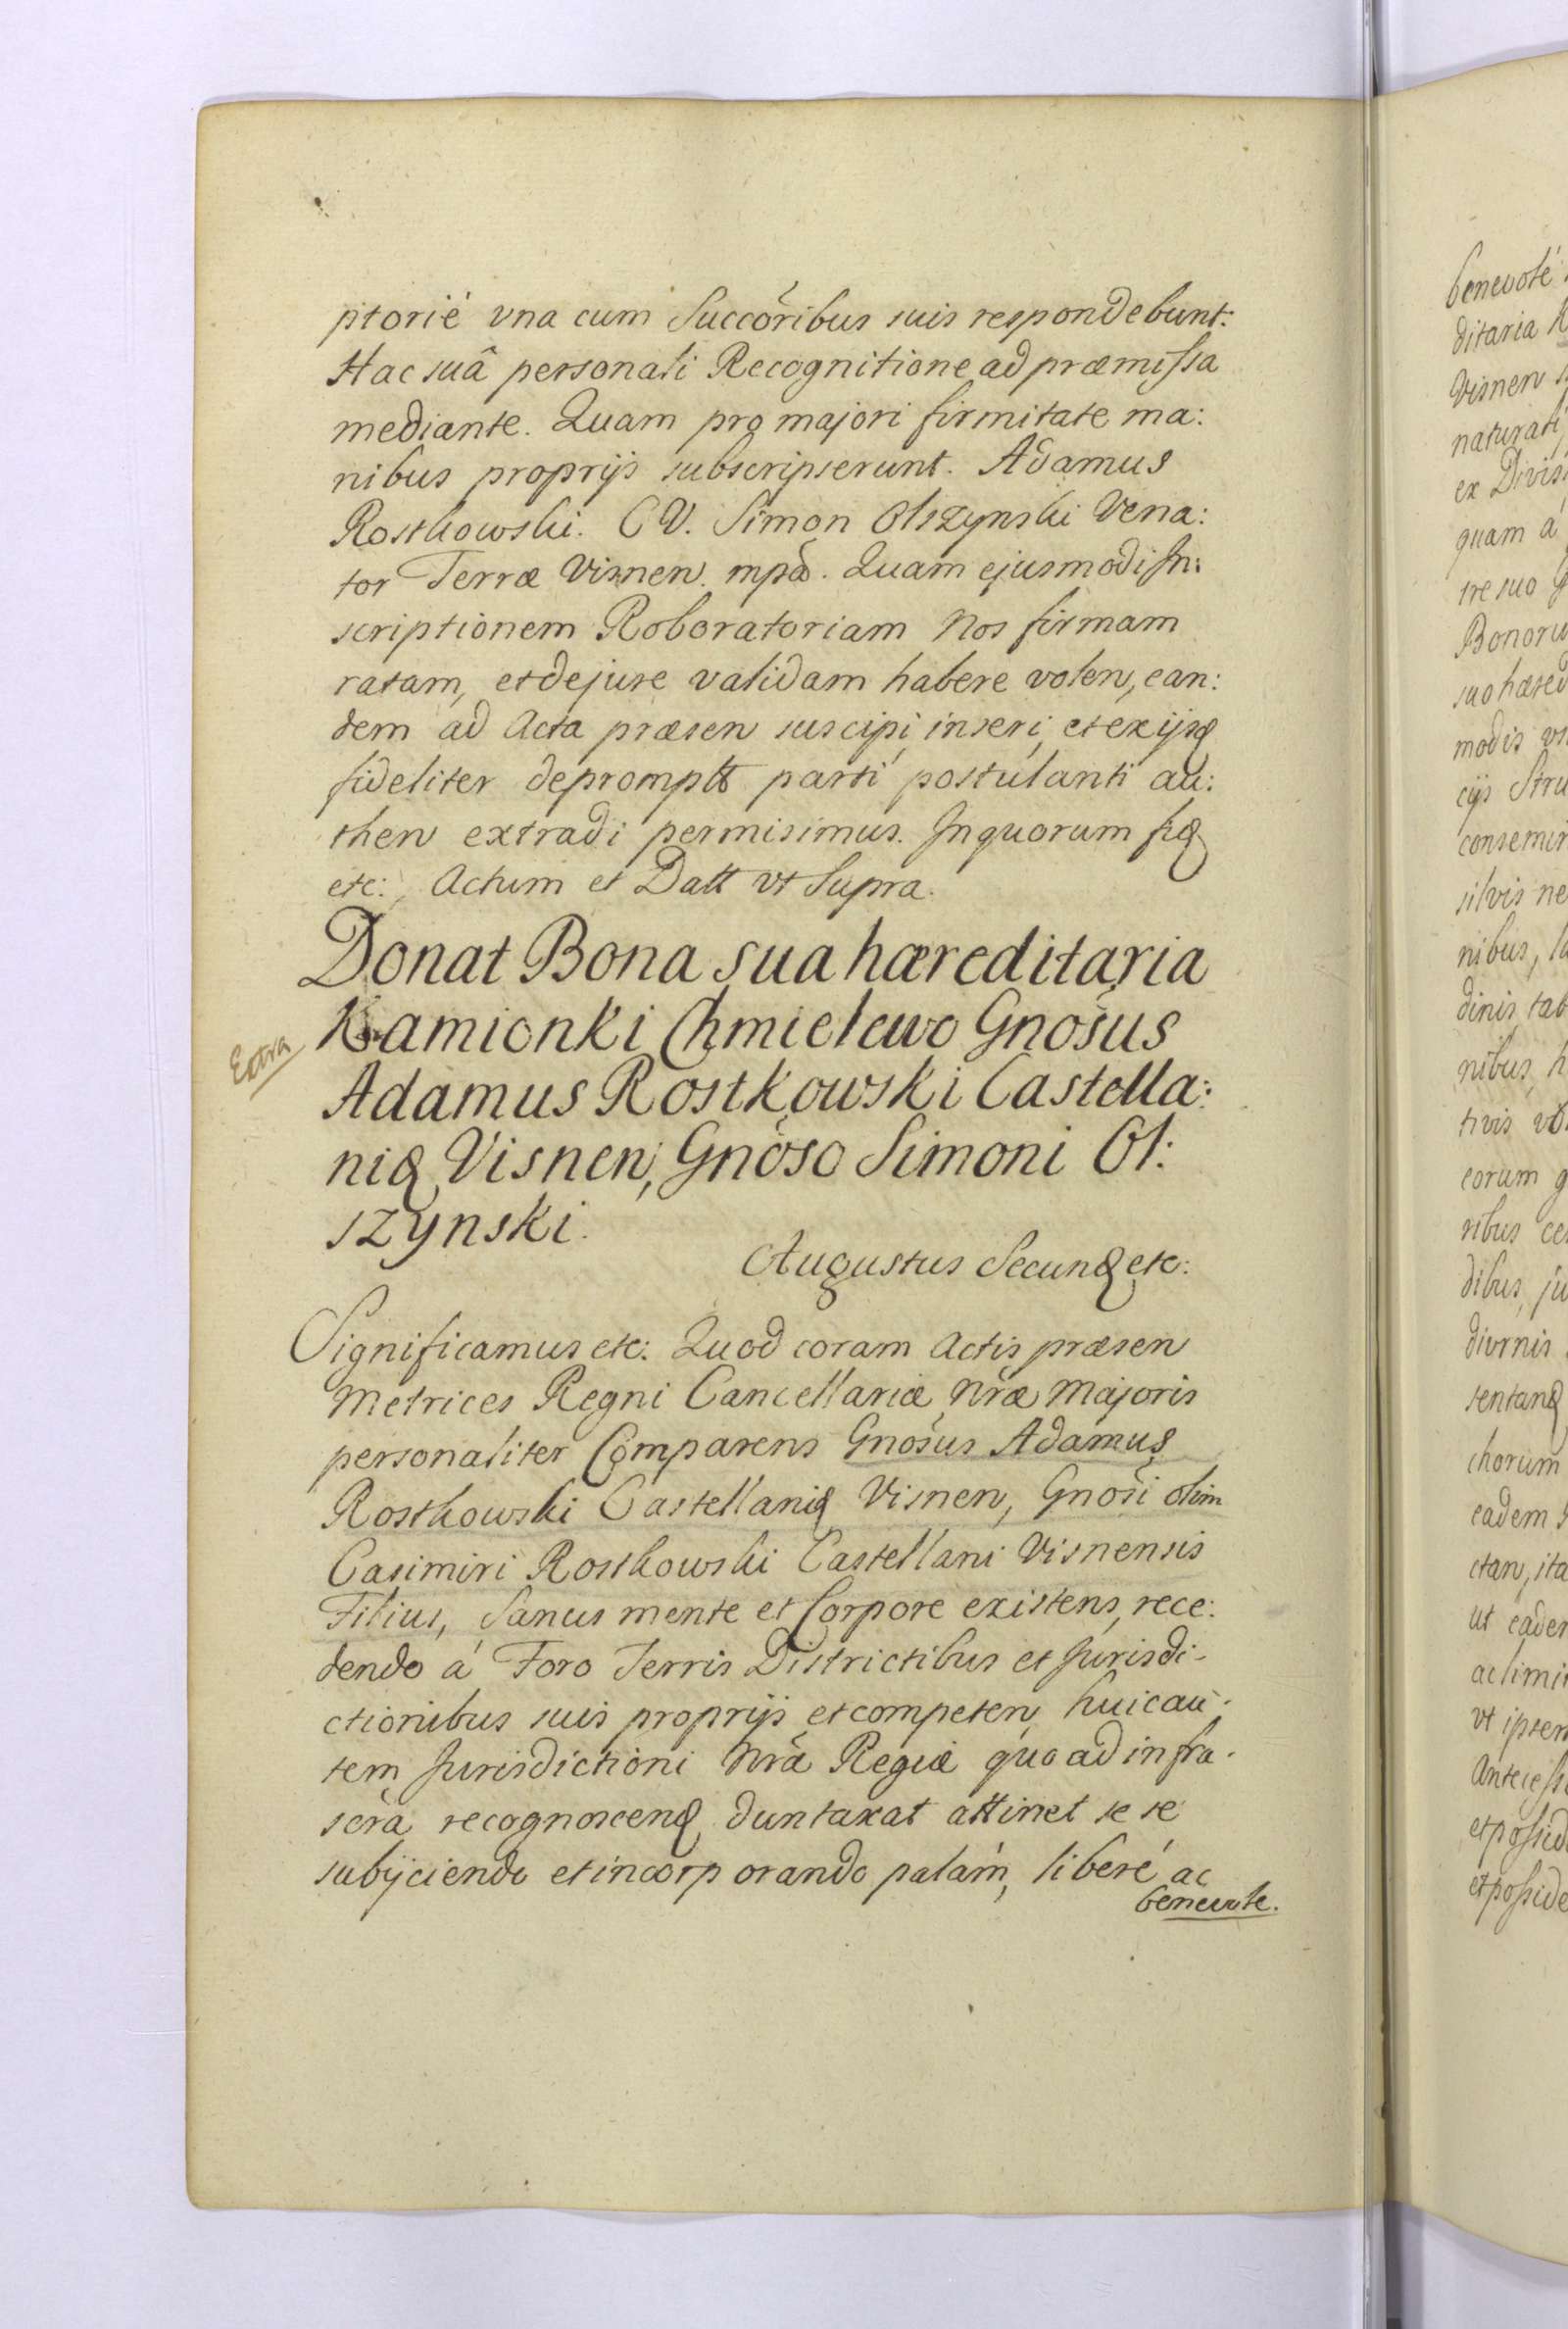 ptorié vna cum Succõribus suis respondebunt:
Hac suâ personali Recognitione ad præmissa
mediante. Quam pro majori firmitate ma:
nibus proprijs subscripserunt. Adamus
Rostkowski. C V. Simon Olszynski Vena:
tor Terræ Visnen. mpã. Quam ejusmodi In:
scriptionem Roboratoriam Nos firmam
ratam, et de jure validam habere volen, ean:
dem ad Acta præsen suscipi, inseri, et ex ijsq
fideliter deprompt parti postulanti au:
then extradi permisimus. In quorum fiq
etc: Actum et Datt vt Supra.
Donat Bona sua hæreditaria
Kamionki Chmielewo Gnõsus
Extra
Adamus Rostkowski Castella:
niq Visnen, Gnõso Simoni Ol:
szynski.
Augustus Secunq etc:
Significamus etc: Quod coram Actis præsen
Metrices Regni Cancellariæ Nræ Majoris
personaliter Comparens Gnõsus Adamus
Rostkowski Castellaniq Visnen, Gnõsi olim
Casimiri Rostkowski Castellani Visnensis
Filius, Sanus mente et Corpore existens, rece:
dendo á Foro Terris Districtibus et Jurisdi-
ctionibus suis proprijs et competen, huic au:
tem Jurisdictioni Nrã Regiæ quo ad infra.
scrã recognoscenq duntaxat attinet se se
subijciendo et incorporando palám, liberé ac
benevole.
benevolé
ditaria
Visnen
naturali
ex Divis
quam á
tre suo G
Bonoru
suo hæred
modis
cijs Stru
silvis ne
nibus, la
nibus, h
tivis
eorum g
ribus ce
dibus, ju
diurnis
chorum
eadem
ctan, ita
ut eader
ac limi
vt ipsem
Antecess
et possid
et posside